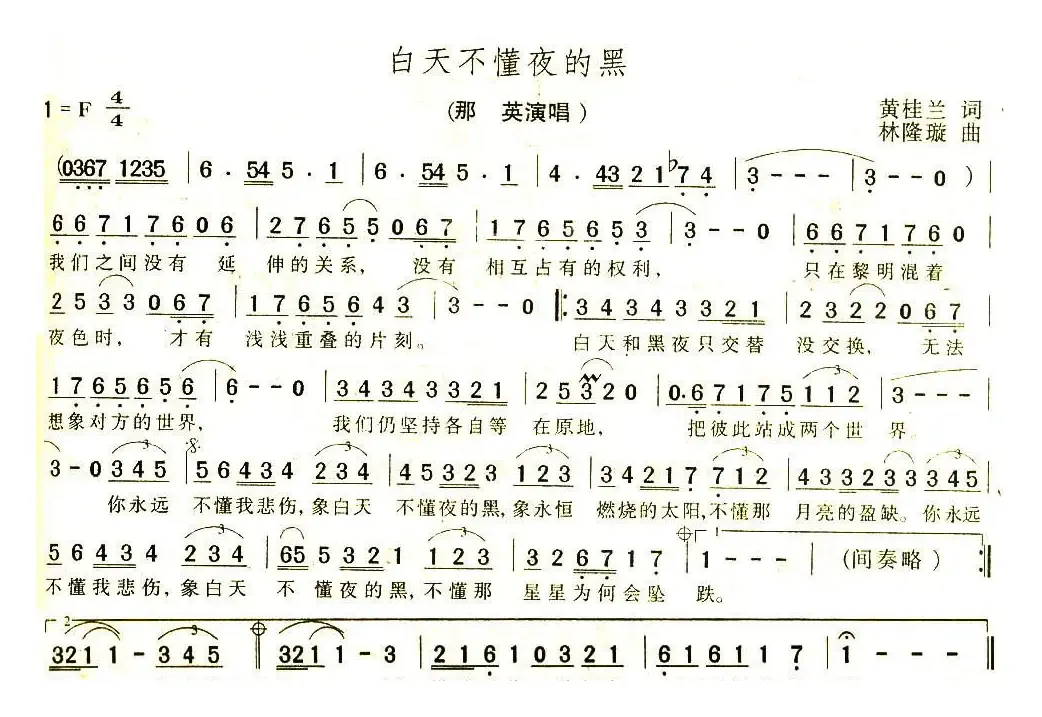 白天不懂夜的黑
1 = F 4/4 (那 英演唱) 黄桂兰 词
林隆璇 曲
(0367 1235 | 6 · 54 5 · 1 | 6 · 54 5 · 1 | 4 · 43 2 1 ♭7 4 | 3 - - - | 3 - - 0 ) |
6 6 7 1 7 6 0 6 | 2 7 6 5 5 0 6 7 | 1 7 6 5 6 5 3 | 3 - - 0 | 6 6 7 1 7 6 0 |
我们之间没有 延 伸的关系, 没有 相互占有的权利, 只在黎明混着
2 5 3 3 0 6 7 | 1 7 6 5 6 4 3 | 3 - - 0 ‖: 3 4 3 4 3 3 2 1 | 2 3 2 2 0 6 7 |
夜色时, 才有 浅浅重叠的片刻。 白天和黑夜只交替 没交换, 无法
1 7 6 5 6 5 6 | 6 - - 0 | 3 4 3 4 3 3 2 1 | 2 5 3 2 0 | 0 · 6 7 1 7 5 1 1 2 | 3 - - - |
想象对方的世界, 我们仍坚持各自等 在原地, 把彼此站成两个世 界。
3 - 0 3 4 5 | 5 6 4 3 4 2 3 4 | 4 5 3 2 3 1 2 3 | 3 4 2 1 7 7 1 2 | 4 3 3 2 3 3 3 4 5 |
你永远 不懂我悲伤, 象白天 不懂夜的黑, 象永恒 燃烧的太阳, 不懂那 月亮的盈缺。你永远
5 6 4 3 4 2 3 4 | 65 5 3 2 1 1 2 3 | 3 2 6 7 1 7 | 1 - - - | (间奏略) :‖
不懂我悲伤, 象白天 不 懂夜的黑, 不懂那 星星为何会坠 跌。
3 2 1 1 - 3 4 5 ‖ 3 2 1 1 - 3 | 2 1 6 1 0 3 2 1 | 6 1 6 1 1 7 | 1 - - - ‖